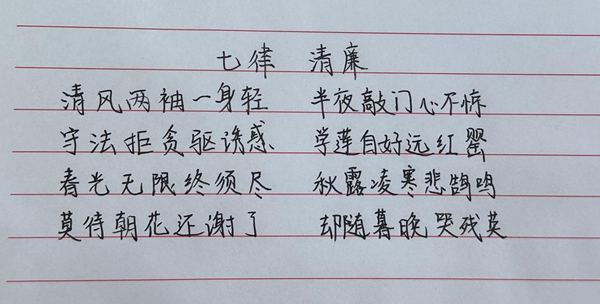 七律 清廉
清风两袖一身轻 半夜敲门心不惊
守法拒贪驱诱惑 学莲自好远红罂
春光无限终须尽 秋露凌寒悲鹄鸣
莫待朝花还谢了 却随暮晚哭残英